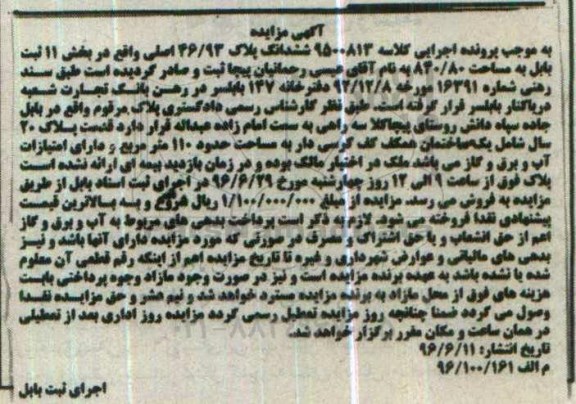 آگهی مزایده
به موجب پرونده اجرایی کلاسه ۹۵۰۰۸۱۳ ششدانگ پلاک ۴۶/۹۳ اصلی واقع در بخش ۱۱ ثبت
بابل به مساحت ۸۴۰/۸۰ به نام آقای عیسی رحمانیان پیجا ثبت و صادر گردیده است طبق سند
رهنی شماره ۱۶۳۹۱ مورخه ۹۲/۱۲/۸ دفترخانه ۱۴۷ بابلسر در رهن بانک تجارت شعبه
دریاکنار بابلسر قرار گرفته است. طبق نظر کارشناس رسمی دادگستری پلاک مرقوم واقع در بابل
جاده سپاه دانش روستای پیجاکلا سه راهی به سمت امام زاده عبداله قرار دارد قدمت پلاک ۲۰
سال شامل یک ساختمان همکف کف کرسی دار به مساحت حدود ۱۱۰ متر مربع و دارای امتیازات
آب و برق و گاز می باشد ملک در اختیار مالک بوده و در زمان بازدید بیمه ای ارائه نشده است
پلاک فوق از ساعت ۹ الی ۱۲ روز چهارشنبه مورخ ۹۶/۶/۲۹ در اجرای ثبت اسناد بابل از طریق
مزایده به فروش می رسد. مزایده از مبلغ ۱/۱۰۰/۰۰۰/۰۰۰ ریال شروع و به بالاترین قیمت
پیشنهادی نقدا فروخته می شود. لازم به ذکر است پرداخت بدهی های مربوط به آب و برق و گاز
اعم از حق انشعاب و یا حق اشتراک و مصرف در صورتی که مورد مزایده دارای آنها باشد و نیز
بدهی های مالیاتی و عوارض شهرداری و غیره تا تاریخ مزایده اعم از اینکه رقم قطعی آن معلوم
شده یا نشده باشد به عهده برنده مزایده است و نیز در صورت وجود مازاد وجوه پرداختی بابت
هزینه های فوق از محل مازاد به برنده مزایده مسترد خواهد شد و نیم عشر و حق مزایده نقدا
وصول می گردد ضمنا چنانچه روز مزایده تعطیل رسمی گردد مزایده روز اداری بعد از تعطیلی
در همان ساعت و مکان مقرر برگزار خواهد شد.
تاریخ انتشار: ۹۶/۶/۱۱
م الف ۹۶/۱۰۰/۱۶۱
اجرای ثبت بابل